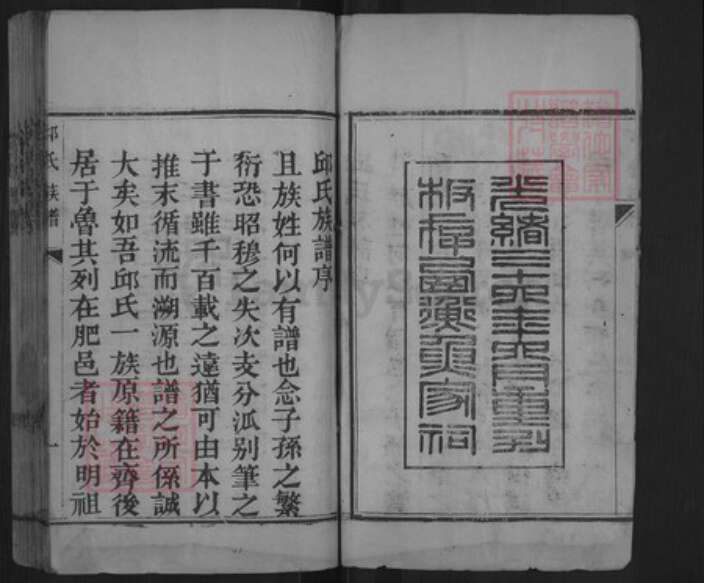 光緒三十四年六月重刊
板存
家祠
邱氏族譜序
且族姓何以有譜也念子孫之繁
衍恐昭穆之失次支分派别筆之
于書雖千百載之遠猶可由本以
推末循流而溯源也譜之所係誠
大矣如吾邱氏一族原籍在齊後
居于魯其列在肥邑者始於明祖
邱氏族譜
一